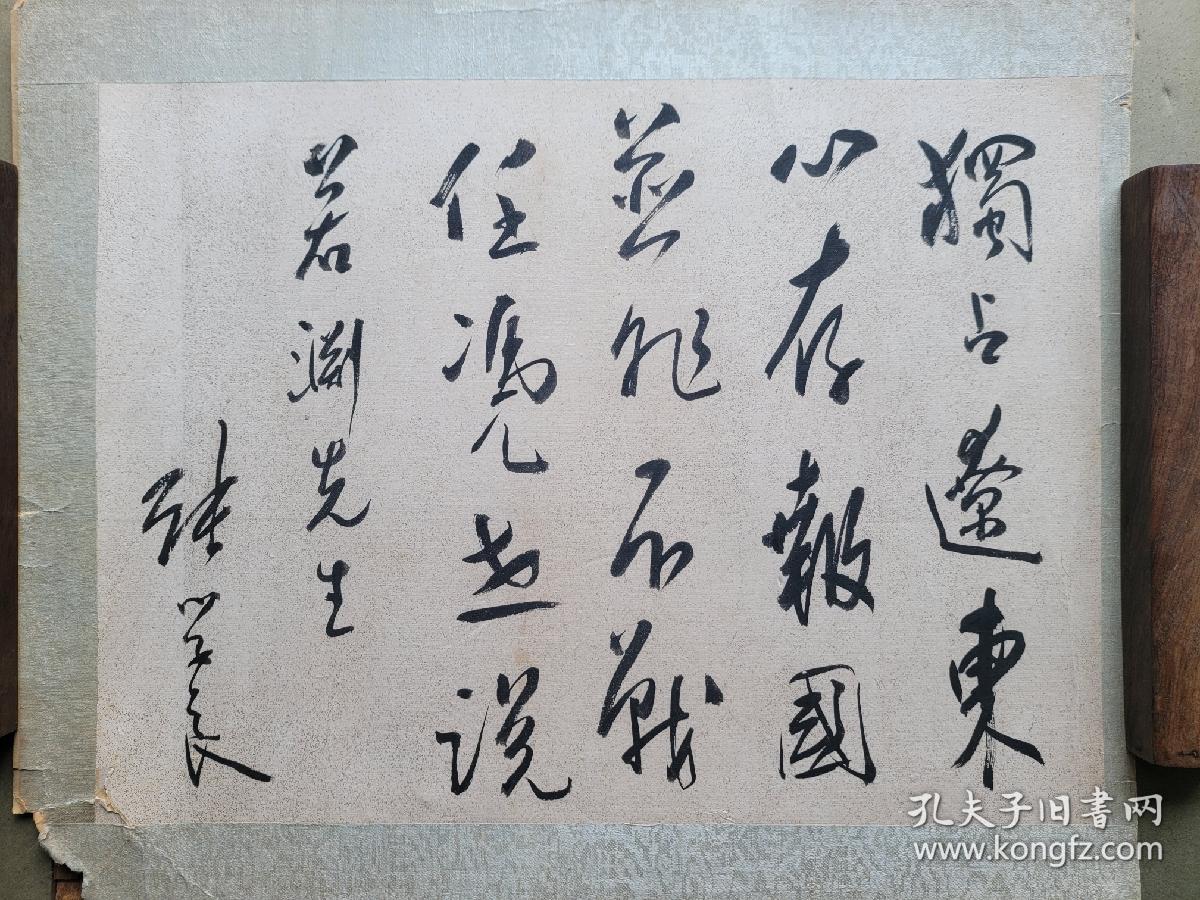 獨占遼東
心存報國
並非不戰
任馮世說
若淵先生
張學良
孔夫子旧书网
www.kongfz.com